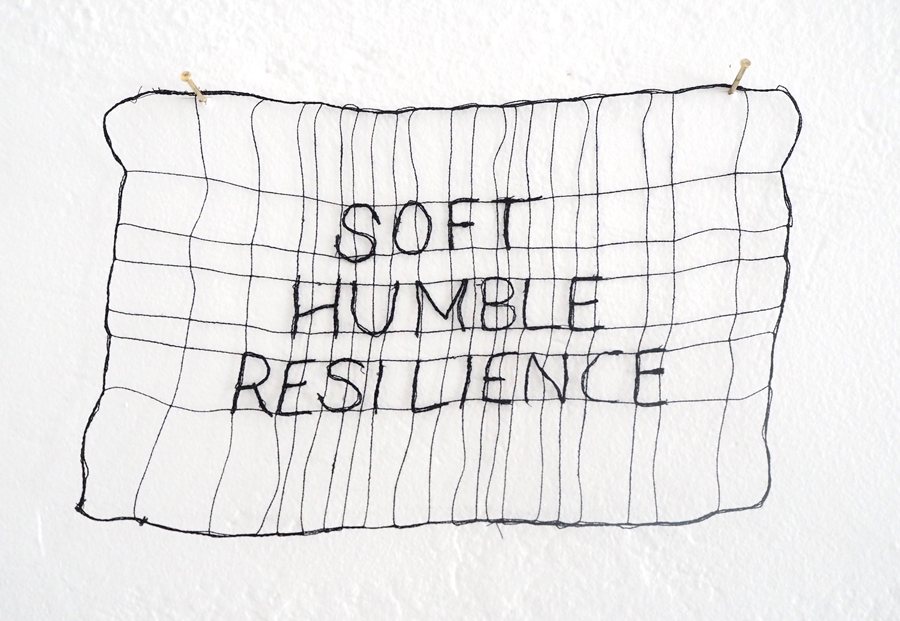 SOFT
HUMBLE
RESILIENCE